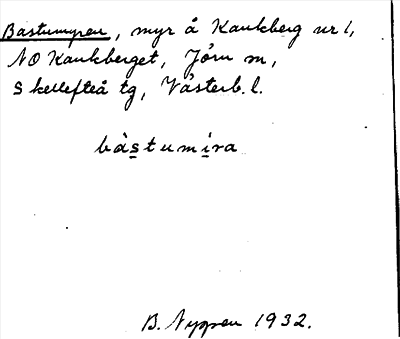 Bastumyren, myr å Kankberg nr 1,
NO Kankberget, Jörn sn,
Skellefteå tg, Västerb. l.
bàstumira
B. Nygren 1932.